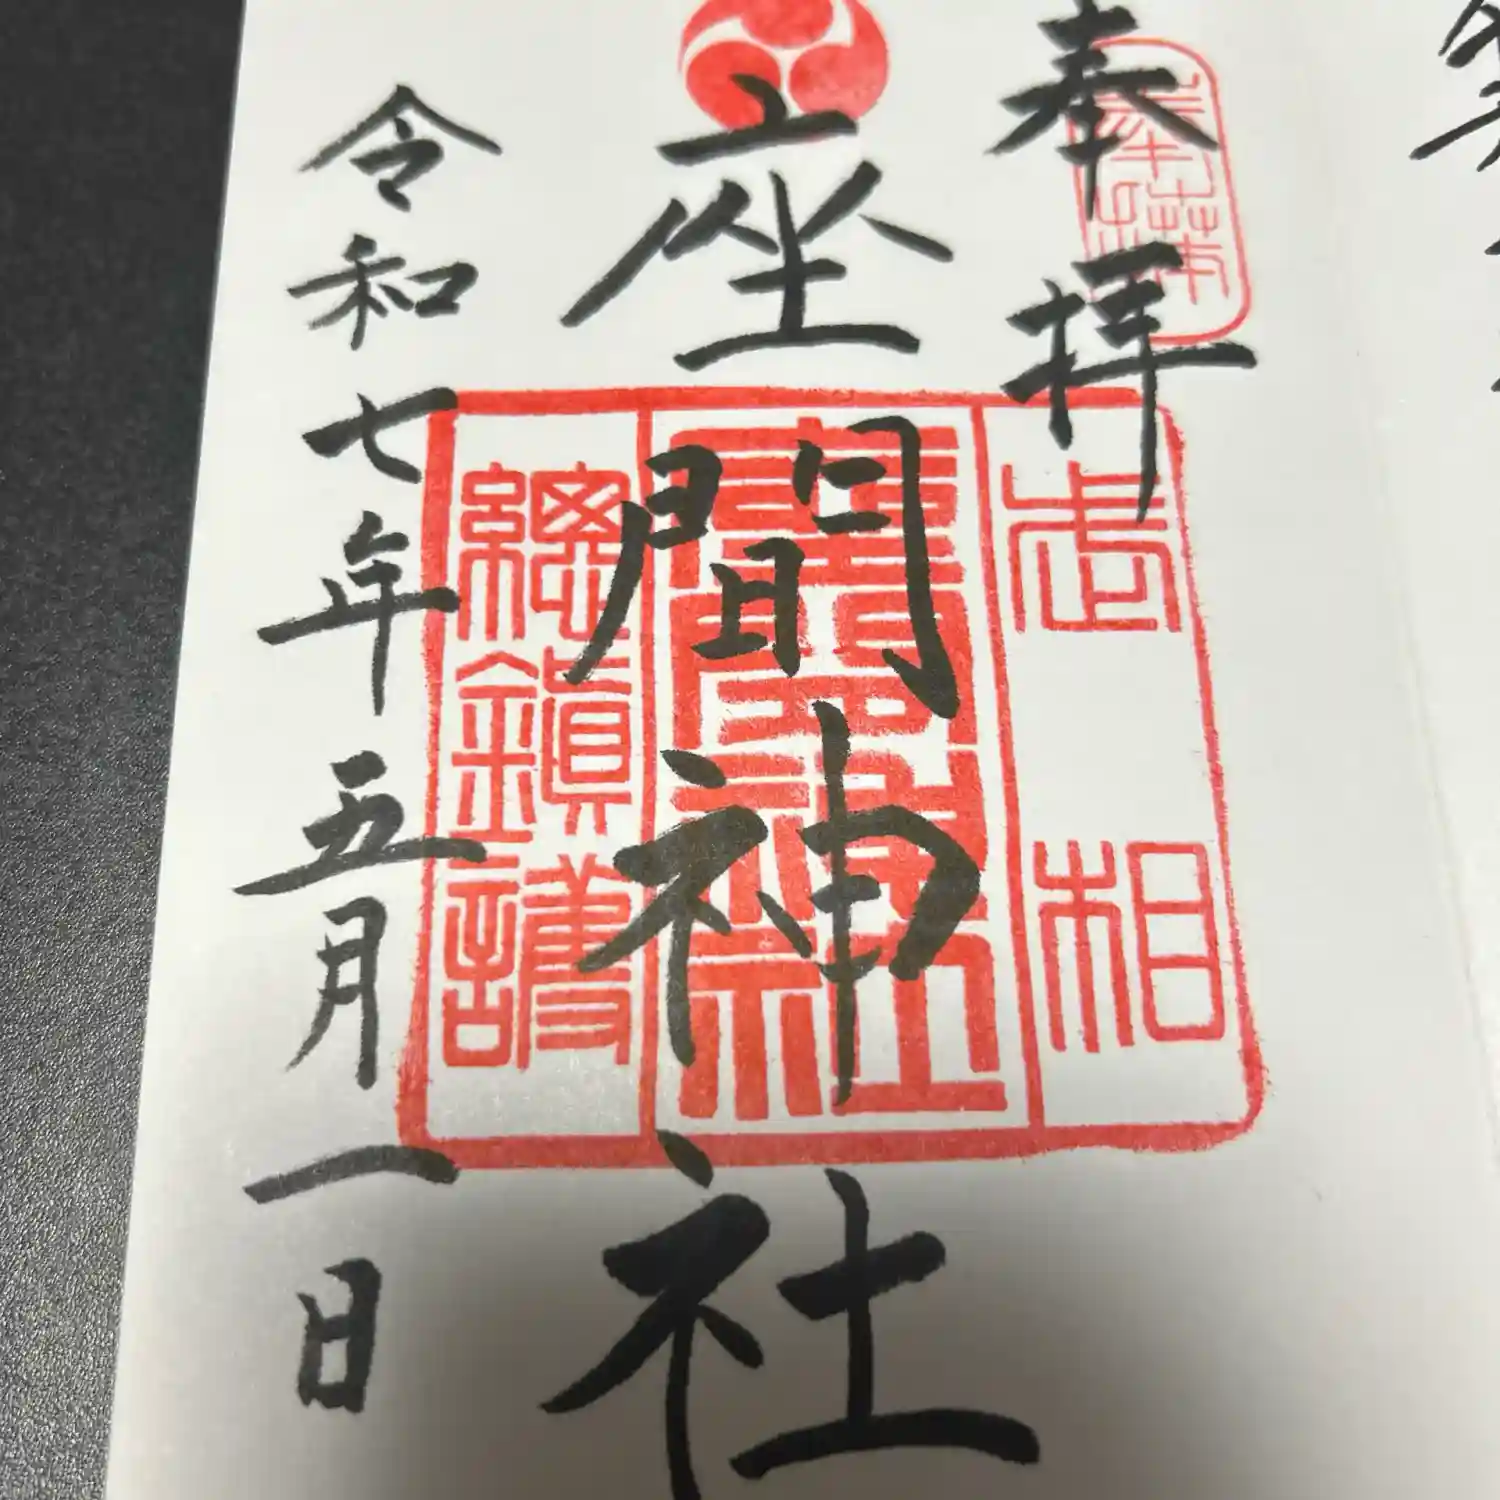 奉拝
奉拝
武相
座間神社
座間神社
總鎮護
令和七年五月一日